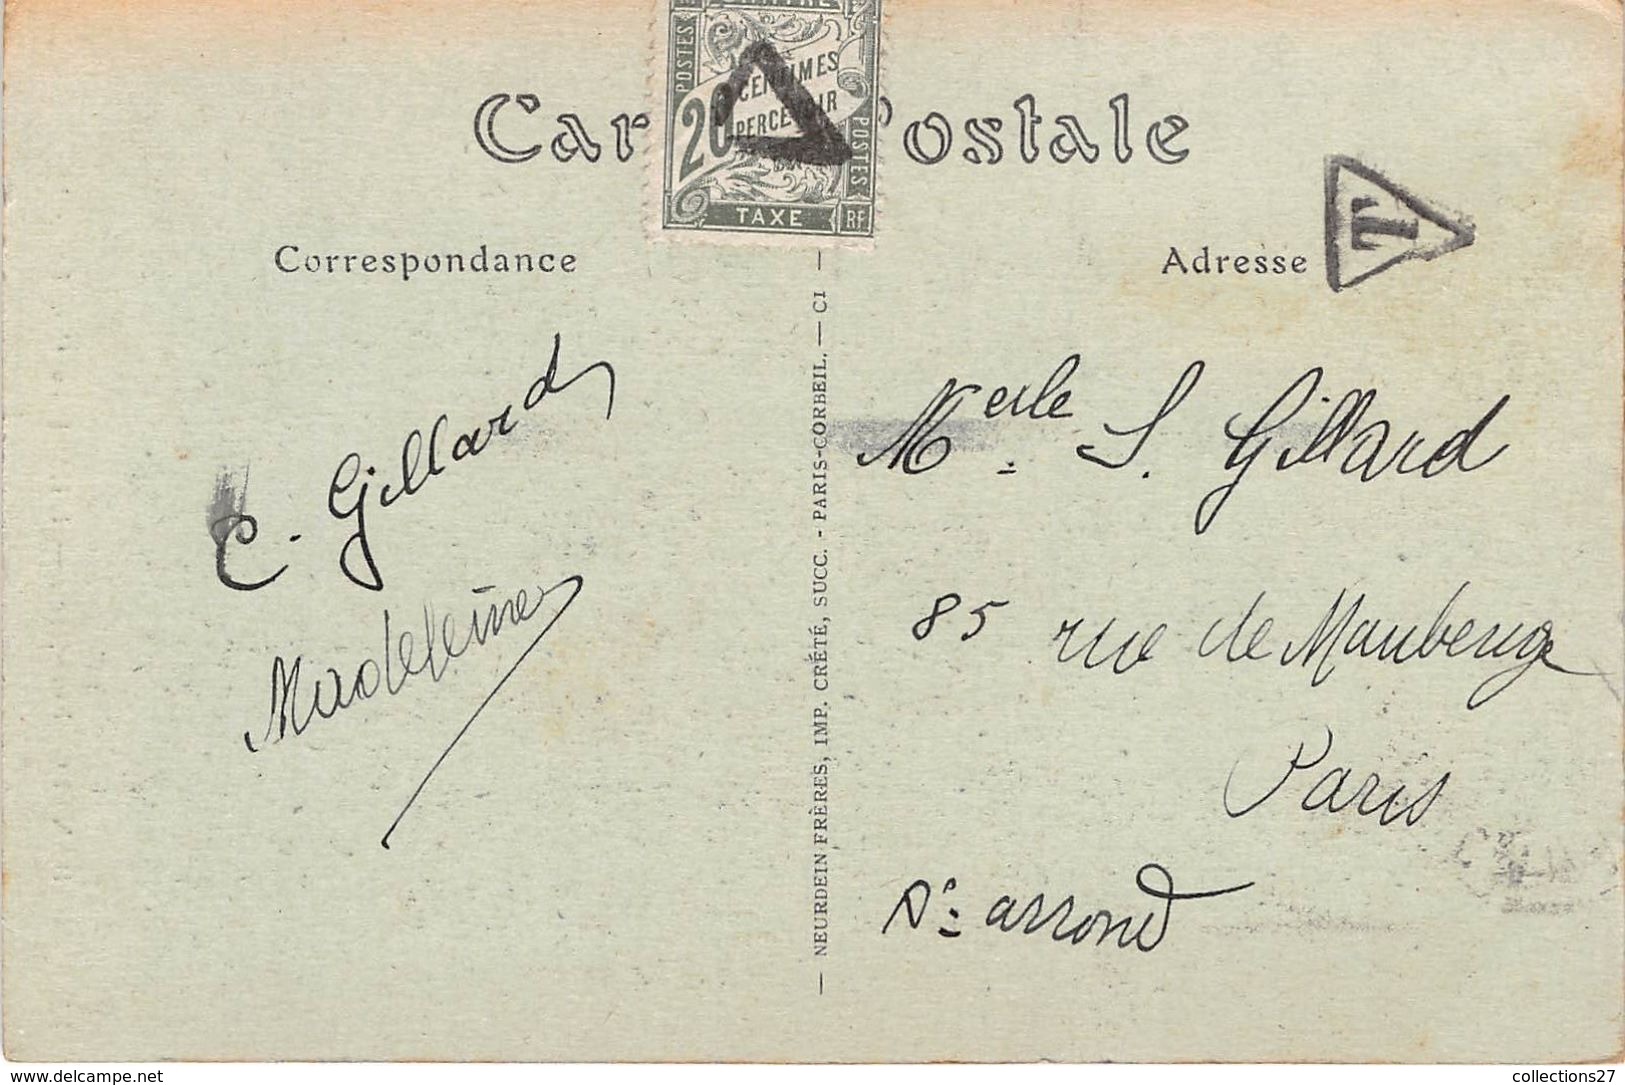 Carte Postale
CHIFFRE
POSTES
20
CENTIMES
PERCEVOIR
POSTES
TAXE
RF
T
Correspondance
Adresse
C. Gillard
Madeleine
— NEURDEIN FRÈRES, IMP. CRÉTÉ, SUCC. - PARIS-CORBEIL. — CI —
Melle S. Gillard
85 rue de Maubeuge
Paris
arrond
www.delcampe.net
collections27